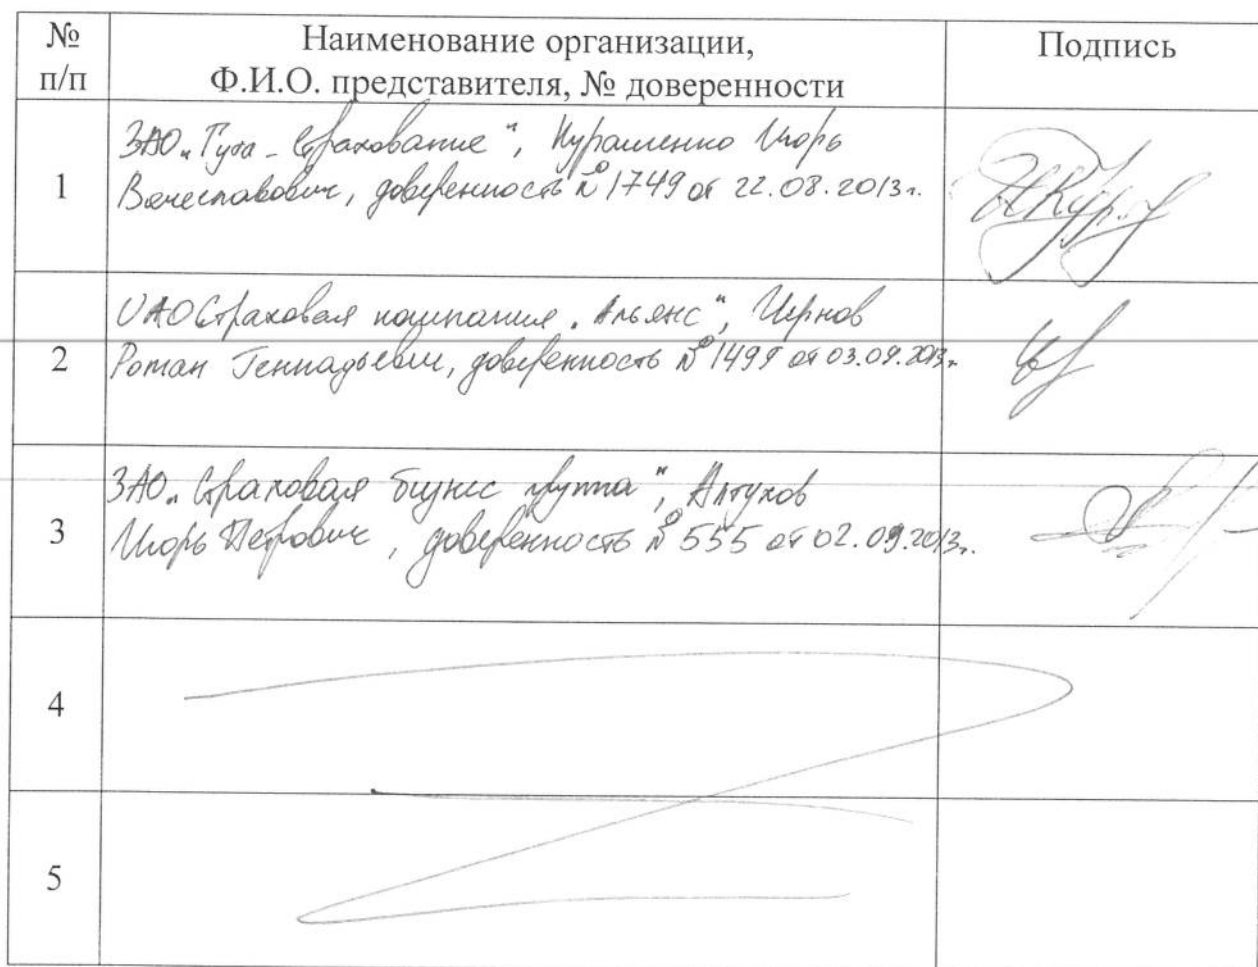 №
п/п
Наименование организации,
Ф.И.О. представителя, № доверенности
Подпись
1
ЗАО „Гута - Страхование", Курашенко Игорь
Вячеславович, доверенность № 1749 от 22.08.2013г.
2
ОАО Страховая компания „Альянс", Чернов
Роман Геннадьевич, доверенность № 1499 от 03.09.2013г.
3
ЗАО „Страховая бизнес группа", Алтухов
Игорь Петрович, доверенность № 555 от 02.09.2013г.
4
5